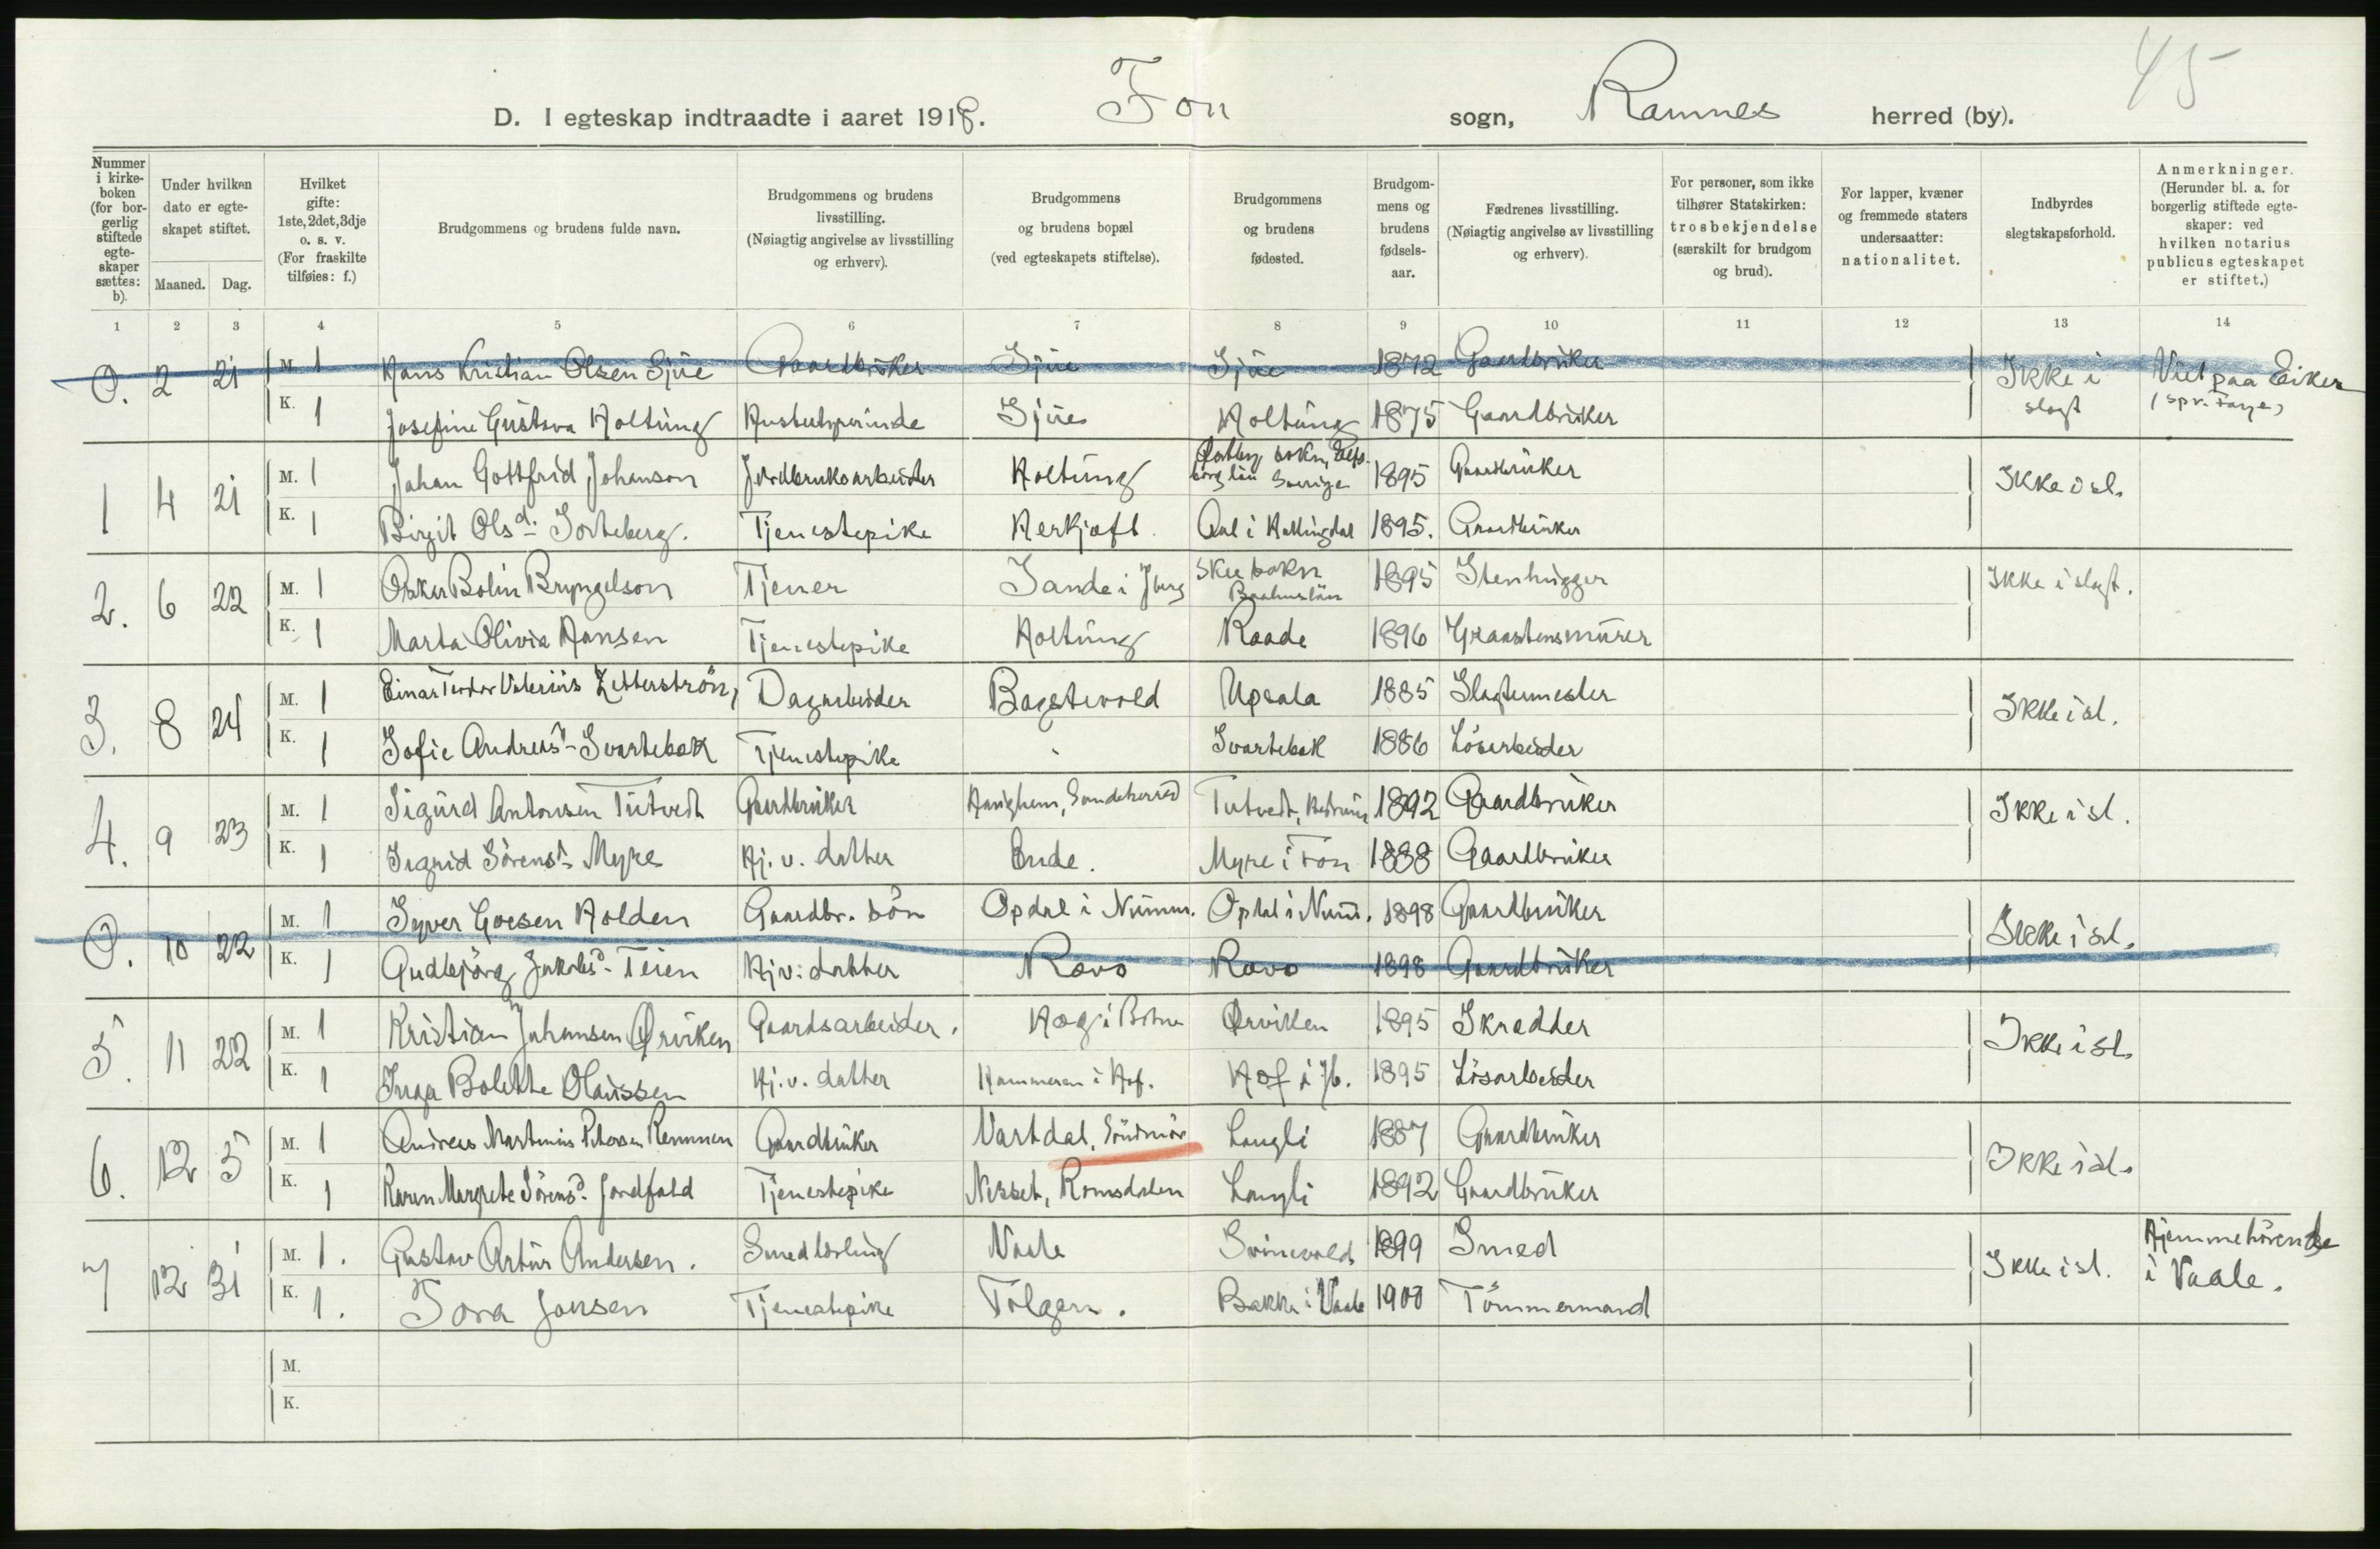 45
D. I egteskap indtraadte i aaret 1918. Fon sogn, Ramnes herred (by).
Nummer i kirkeboken (for borgerlig stiftede egteskaper sættes: b).
Under hvilken dato er egteskapet stiftet.
Maaned. Dag.
Hvilket gifte: 1ste, 2det, 3dje o. s. v. (For fraskilte tilføies: f.)
Brudgommens og brudens fulde navn.
Brudgommens og brudens livsstilling. (Nøiagtig angivelse av livsstilling og erhverv).
Brudgommens og brudens bopæl (ved egteskapets stiftelse).
Brudgommens og brudens fødested.
Brudgommens og brudens fødselsaar.
Fædrenes livsstilling. (Nøiagtig angivelse av livsstilling og erhverv).
For personer, som ikke tilhører Statskirken: trosbekjendelse (særskilt for brudgom og brud).
For lapper, kvæner og fremmede staters undersaatter: nationalitet.
Indbyrdes slegtskapsforhold.
Anmerkninger. (Herunder bl. a. for borgerlig stiftede egteskaper: ved hvilken notarius publicus egteskapet er stiftet.)
1 2 3 4 5 6 7 8 9 10 11 12 13 14
0. 2 21 M. 1 Hans Kristian Olsen Sjue Gaardbruker Sjue Sjue 1872 Gaardbruker Ikke i slegt Viet paa Eiker
K. 1 Josefine Gustava Holtung Husbestyrerinde Sjue Holtung 1875 Gaardbruker
1 4 21 M. 1 Johan Gottfrid Johanson Jordbruksarbeider Holtung sokn, Elfsborg län Sverige 1895 Gaardbruker Ikke i sl.
K. 1 Birgit Olsd. Sorteberg. Tjenestepike Herkjøft. Aal i Hallingdal 1895. Gaardbruker
2. 6 22 M. 1 Oskar Bolin Bryngelson Tjener Sande i Jberg Skee sokn Baahuslän 1895 Stenhugger Ikke i slegt.
K. 1 Marta Olivia Hansen Tjenestepike Holtung Raade 1896 Graastensmurer
3. 8 24 M. 1 Einar Teodor Valerius Zetterström, Dagarbeider Bagstevold Upsala 1885 Slagtermester Ikke i sl.
K. 1 Sofie Andreasd. Svartebak Tjenestepike " Svartebak 1886 Løsarbeider
4. 9 23 M. 1 Sigurd Antonsen Tutvedt Gaardbruker Haughem, Sandeherred Tutvedt, Hedrum 1892 Gaardbruker Ikke i sl.
K. 1 Sigrid Sörensd. Myre Hj. v. datter Ende. Myre i Fon 1888 Gaardbruker
0. 10 22 M. 1 Syver Goesen Holden Gaardbr. sön Opdal i Numm. Opdal i Numd. 1898 Gaardbruker Ikke i sl.
K. 1 Gudbjörg Jakobsd. Teien Hj. v. datter Rovo Rovo 1898 Gaardbruker
5. 11 22 M. 1 Kristian Johansen Ørviken Gaardsarbeider. Ørviken 1895 Skrædder Ikke i sl.
K. 1 Inga Bolette Olaussen Hj. v. datter Hammeren i Hof. Hof i Jb. 1895 Løsarbeider
6. 12 5 M. 1 Andreas Martinius Petersen Remmen Gaardbruker Vartdal, Söndmör Langli 1887 Gaardbruker Ikke i sl.
K. 1 Karen Margrete Sörensd. Jordfald Tjenestepike Nesset, Romsdalen Langli 1892 Gaardbruker
7 12 31 M. 1. Gustav Artur Andersen. Smedlærling Vaale Svinevold 1899 Smed Ikke i sl. Hjemmehörende i Vaale.
K. 1. Tora Jonsen Tjenestepike Tolgern. Bakke i Vaale 1900 Tömmermand
M.
K.